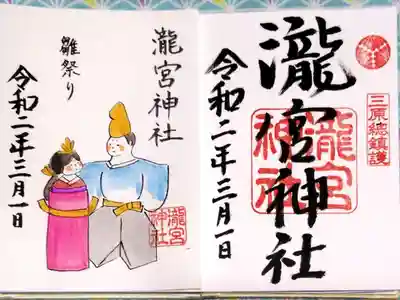 三原總鎮護
瀧宮神社
瀧宮神社
令和二年三月一日
瀧宮神社
雛祭り
令和二年三月一日
瀧宮神社